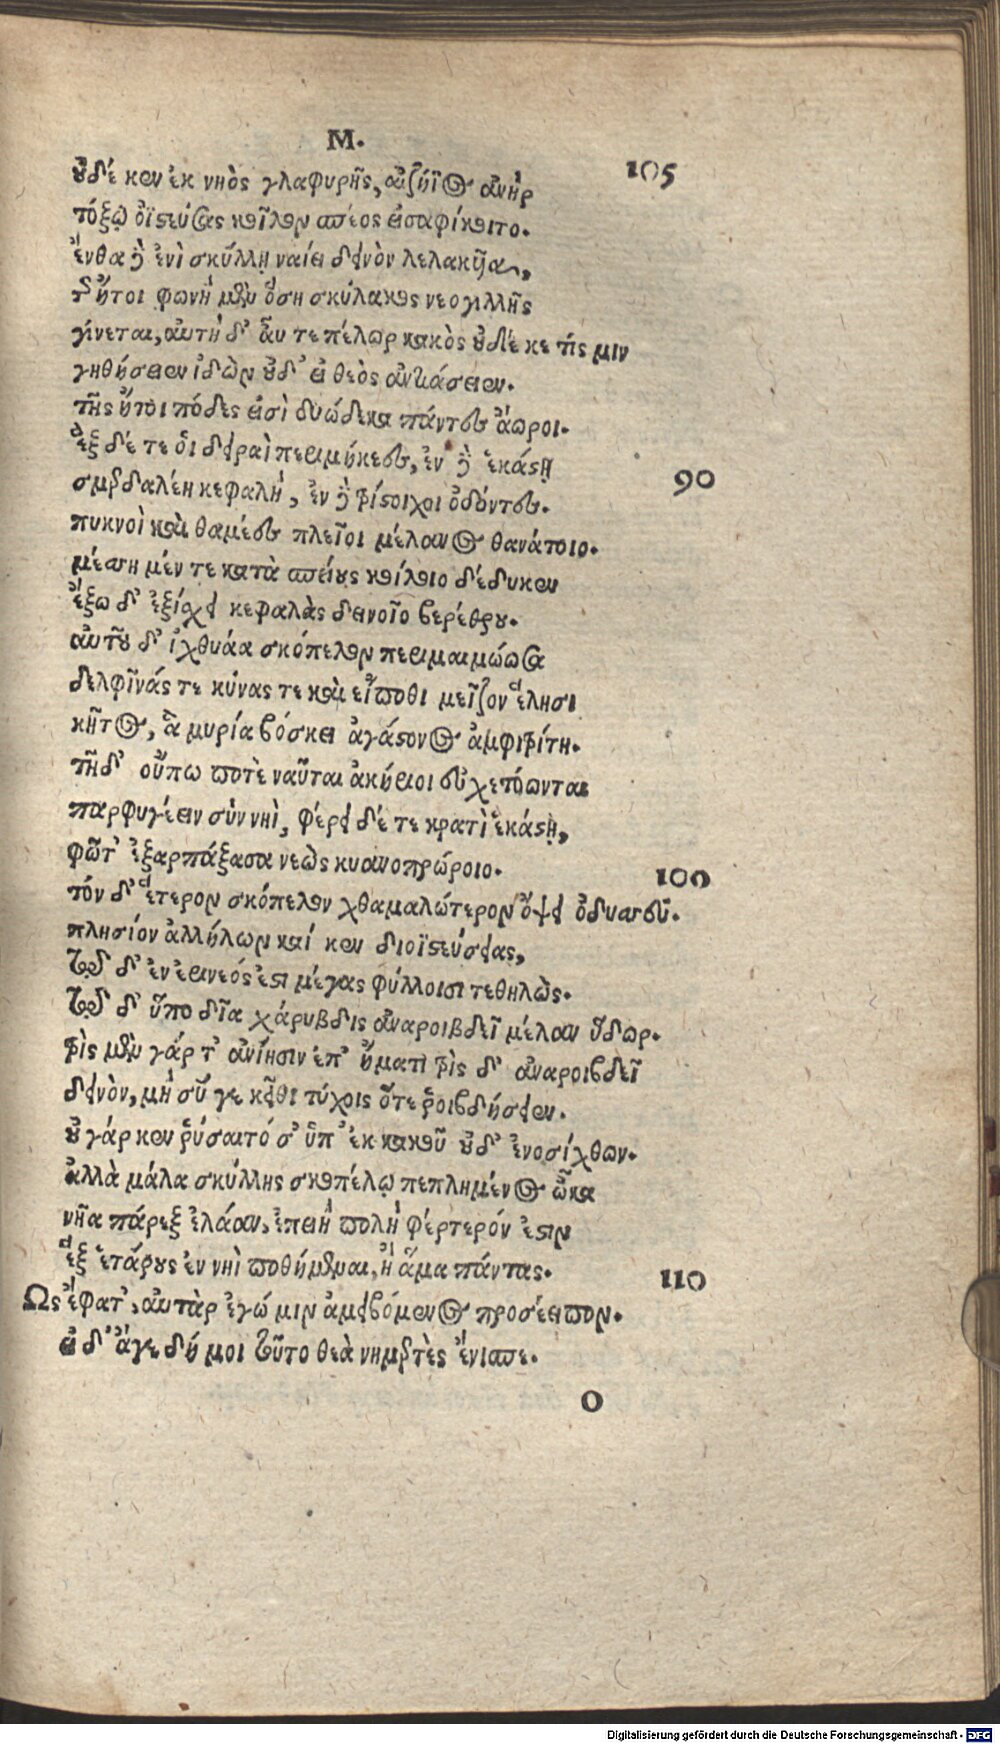 Μ.
105
οὐδέ κεν ἐκ νηὸς γλαφυρῆς, αἰζήϊος ἀνὴρ
τόξῳ ὀϊστεύσας κοῖλον σπέος εἰσαφίκοιτο.
ἔνθα δ' ἐνὶ σκύλλη ναίει δεινὸν λελακυῖα,
τῆς ἤτοι φωνὴ μὲν ὅση σκύλακος νεογιλλῆς
γίνεται, αὐτὴ δ' αὖτε πέλωρ κακὸς οὐδέ κέ τίς μιν
γηθήσειεν ἰδὼν οὐδ' εἰ θεὸς ἀντιάσειεν.
τῆς ἤτοι πόδες εἰσὶ δυώδεκα πάντες ἄωροι.
ἓξ δέ τε οἱ δειραὶ περιμήκεες, ἐν δὲ ἑκάστῃ
90
σμερδαλέη κεφαλὴ, ἐν δὲ τρίστοιχοι ὀδόντες.
πυκνοὶ καὶ θαμέες πλεῖοι μέλανος θανάτοιο.
μέσση μέν τε κατὰ σπείους κοίλοιο δέδυκεν
ἔξω δ' ἐξίσχει κεφαλὰς δεινοῖο βερέθρου.
αὐτοῦ δ' ἰχθυάα σκόπελον περιμαιμώωσα
δελφῖνάς τε κύνας τε καὶ εἴποθι μεῖζον ἕλησι
κῆτος, ἃ μυρία βόσκει ἀγάστονος ἀμφιτρίτη.
τῇ δ' οὔπω ποτὲ ναῦται ἀκήριοι εὐχετόωνται
παρφυγέειν σὺν νηὶ, φέρει δέ τε κρατὶ ἑκάστῃ,
φῶτ' ἐξαρπάξασα νεὼς κυανοπρώροιο.
100
τόν δ' ἕτερον σκόπελον χθαμαλώτερον ὄψει ὀδυσσεῦ.
πλησίον ἀλλήλων καί κεν διοϊστεύσειας,
τῷ δ' ἐν ἐρινεός ἐστι μέγας φύλλοισι τεθηλὼς.
τῷ δ' ὕπο δῖα χάρυβδις ἀναροιβδεῖ μέλαν ὕδωρ.
τρὶς μὲν γάρ τ' ἀνίησιν ἐπ' ἤματι τρὶς δ' ἀναροιβδεῖ
δεινὸν, μὴ σύ γε κεῖθι τύχοις ὅτε ῥοιβδήσειεν.
οὐ γάρ κεν ῥύσαιτό σ' ὑπ' ἐκ κακοῦ οὐδ' ἐνοσίχθων.
ἀλλὰ μάλα σκύλλης σκοπέλῳ πεπλημένος ὦκα
νῆα πάρεξ ἐλάαν, ἐπειὴ πολὺ φέρτερόν ἐστιν
ἓξ ἑτάρους ἐν νηὶ ποθήμεναι, ἢ ἅμα πάντας.
110
Ὣς ἔφατ', αὐτὰρ ἐγώ μιν ἀμειβόμενος προσέειπον.
εἰ δ' ἄγε δή μοι τοῦτο θεὰ νημερτὲς ἔνισπε.
O
Digitalisierung gefördert durch die Deutsche Forschungsgemeinschaft - DFG